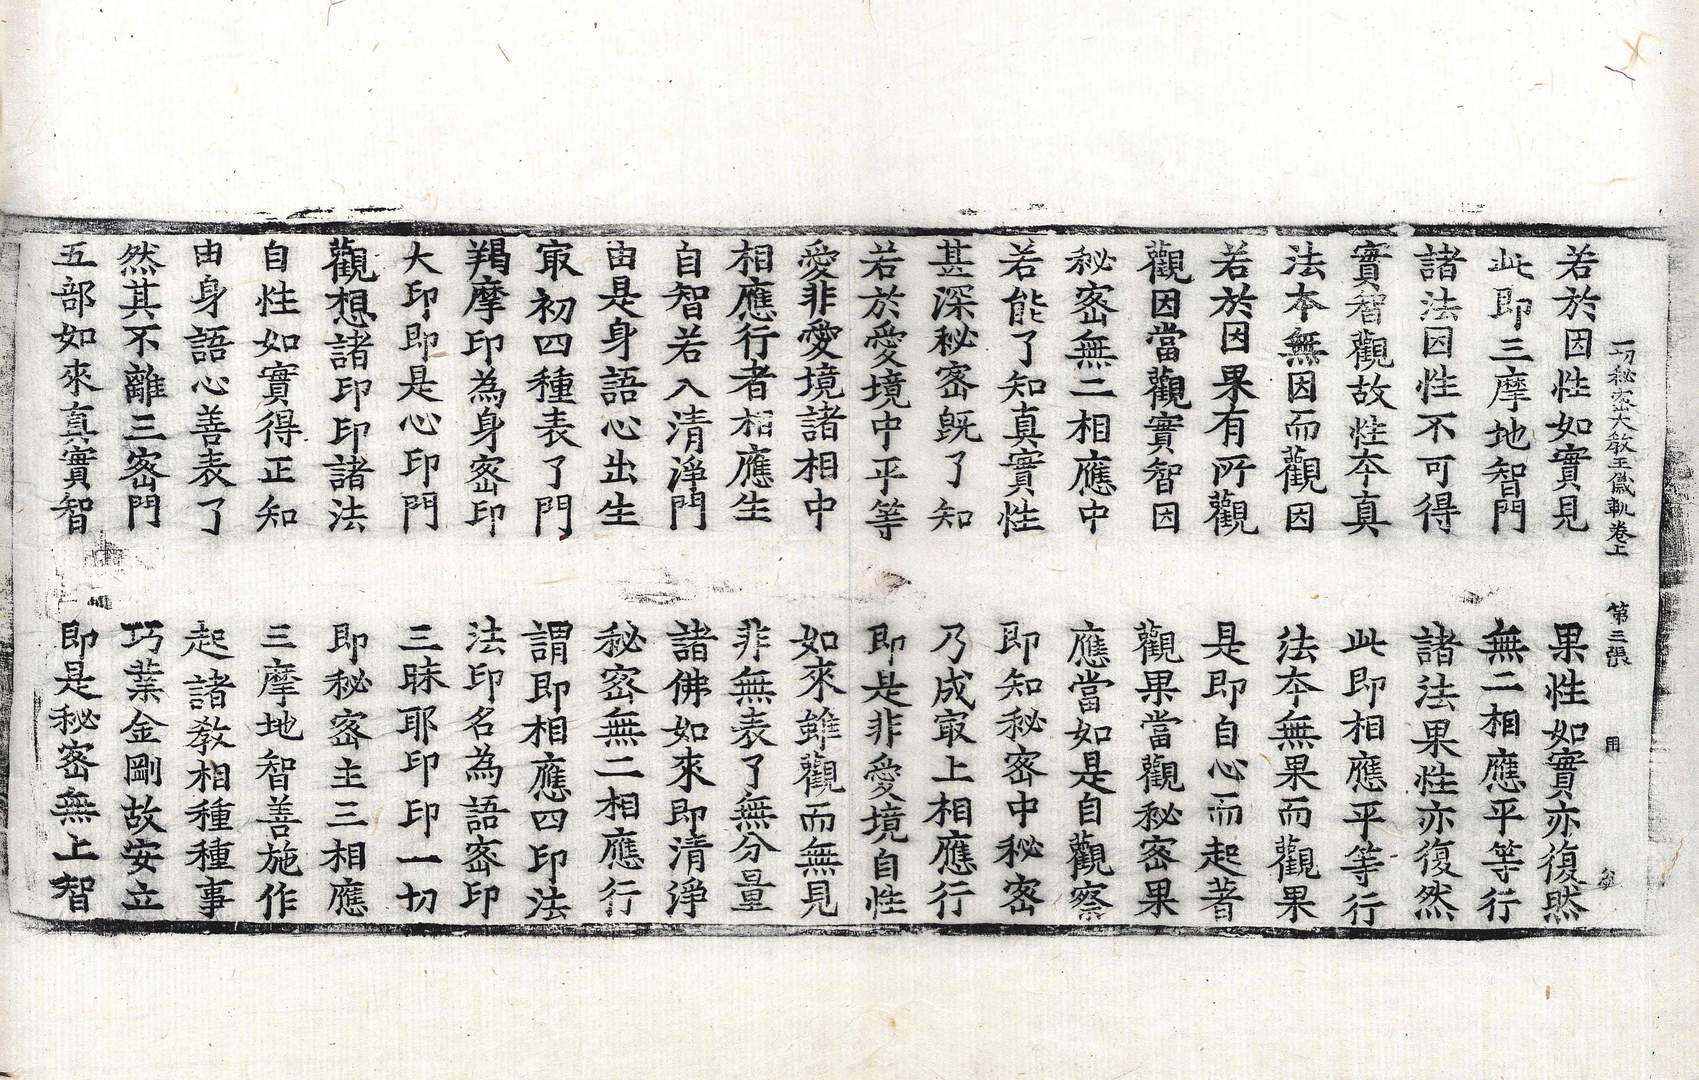 一切秘密大教王儀軌卷上 第三張 用
若於因性如實見 果性如實亦復然
此即三摩地智門 無二相應平等行
諸法因性不可得 諸法果性亦復然
實智觀故性本真 此即相應平等行
法本無因而觀因 法本無果而觀果
若於因果有所觀 是即自心而起著
觀因當觀實智因 觀果當觀秘密果
秘密無二相應中 應當如是自觀察
若能了知真實性 即知秘密中秘密
甚深秘密旣了知 乃成㝡上相應行
若於愛境中平等 即是非愛境自性
愛非愛境諸相中 如來雖觀而無見
相應行者相應生 非無表了無分量
自智若入清淨門 諸佛如來即清淨
由是身語心出生 秘密無二相應行
㝡初四種表了門 謂即相應四印法
羯摩印為身密印 法印名為語密印
大印即是心印門 三昧耶印印一切
觀想諸印印諸法 即秘密主三相應
自性如實得正知 三摩地智善施作
由身語心善表了 起諸教相種種事
然其不離三密門 巧業金剛故安立
五部如來真實智 即是秘密無上智